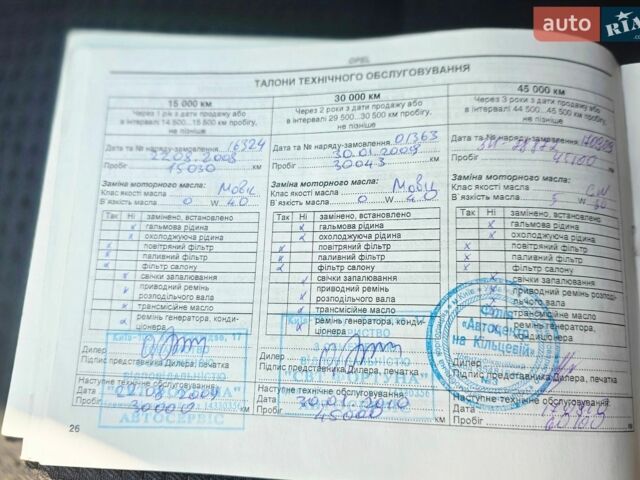 auto RIA
OPEL
ТАЛОНИ ТЕХНІЧНОГО ОБСЛУГОВУВАННЯ
15 000 км
Через 1 рік з дати продажу або
в інтервалі 14 500...15 500 км пробігу,
не пізніше
Дата та № наряду-замовлення 16324
22.08.2008
Пробіг 15030 км
Заміна моторного масла:
Клас якості масла
В`язкість масла 0 W 40
Так Ні замінено, встановлено
гальмова рідина
охолоджуюча рідина
повітряний фільтр
паливний фільтр
фільтр салону
свічки запалювання
приводний ремінь
розподільчого вала
трансмісійне масло
ремінь генератора, конди-
ціонера
Дилер
Підпис представника Дилера, печатка
Наступне технічне обслуговування:
Дата 22.08.2009
Пробіг 30000 км
26
30 000 км
Через 2 роки з дати продажу або
в інтервалі 29 500...30 500 км пробігу,
не пізніше
Дата та № наряду-замовлення 01363
30.01.2009
Пробіг 30043 км
Заміна моторного масла:
Клас якості масла
В`язкість масла 0 W 40
Так Ні замінено, встановлено
гальмова рідина
охолоджуюча рідина
повітряний фільтр
паливний фільтр
фільтр салону
свічки запалювання
приводний ремінь
розподільчого вала
трансмісійне масло
ремінь генератора, конди-
ціонера
Дилер
Підпис представника Дилера, печатка
Наступне технічне обслуговування:
Дата 30.01.2010
Пробіг 45000 км
45 000 км
Через 3 роки з дати продажу або
в інтервалі 44 500...45 500 км пробігу,
не пізніше
Дата та № наряду-замовлення
Пробіг 45100 км
Заміна моторного масла:
Клас якості масла
В`язкість масла 5 W
Так Ні замінено, встановлено
гальмова рідина
охолоджуюча рідина
повітряний фільтр
паливний фільтр
фільтр салону
свічки запалювання
приводний ремінь розподіль-
чого вала
масло
ремінь генератора,
Філія
«Автоцентр
на Кільцевій»
Дилер
Підпис представника Дилера, печатка
Наступне технічне обслуговування:
Дата
Пробіг 60100 км
АВТОСЕРВІС